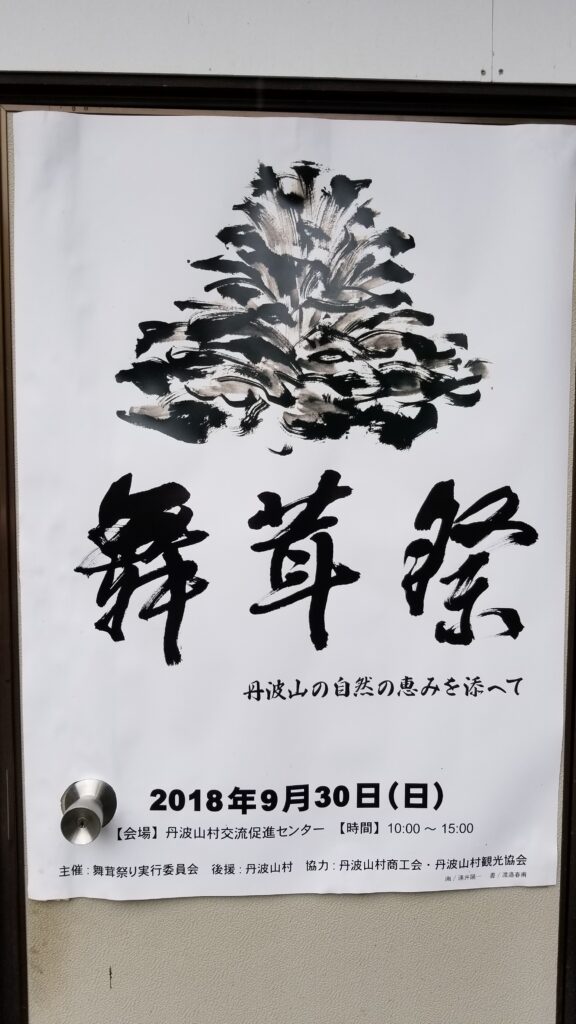 舞茸祭
丹波山の自然の恵みを添へて
2018年9月30日(日)
【会場】丹波山村交流促進センター 【時間】10:00～15:00
主催:舞茸祭り実行委員会 後援:丹波山村 協力:丹波山村商工会・丹波山村観光協会